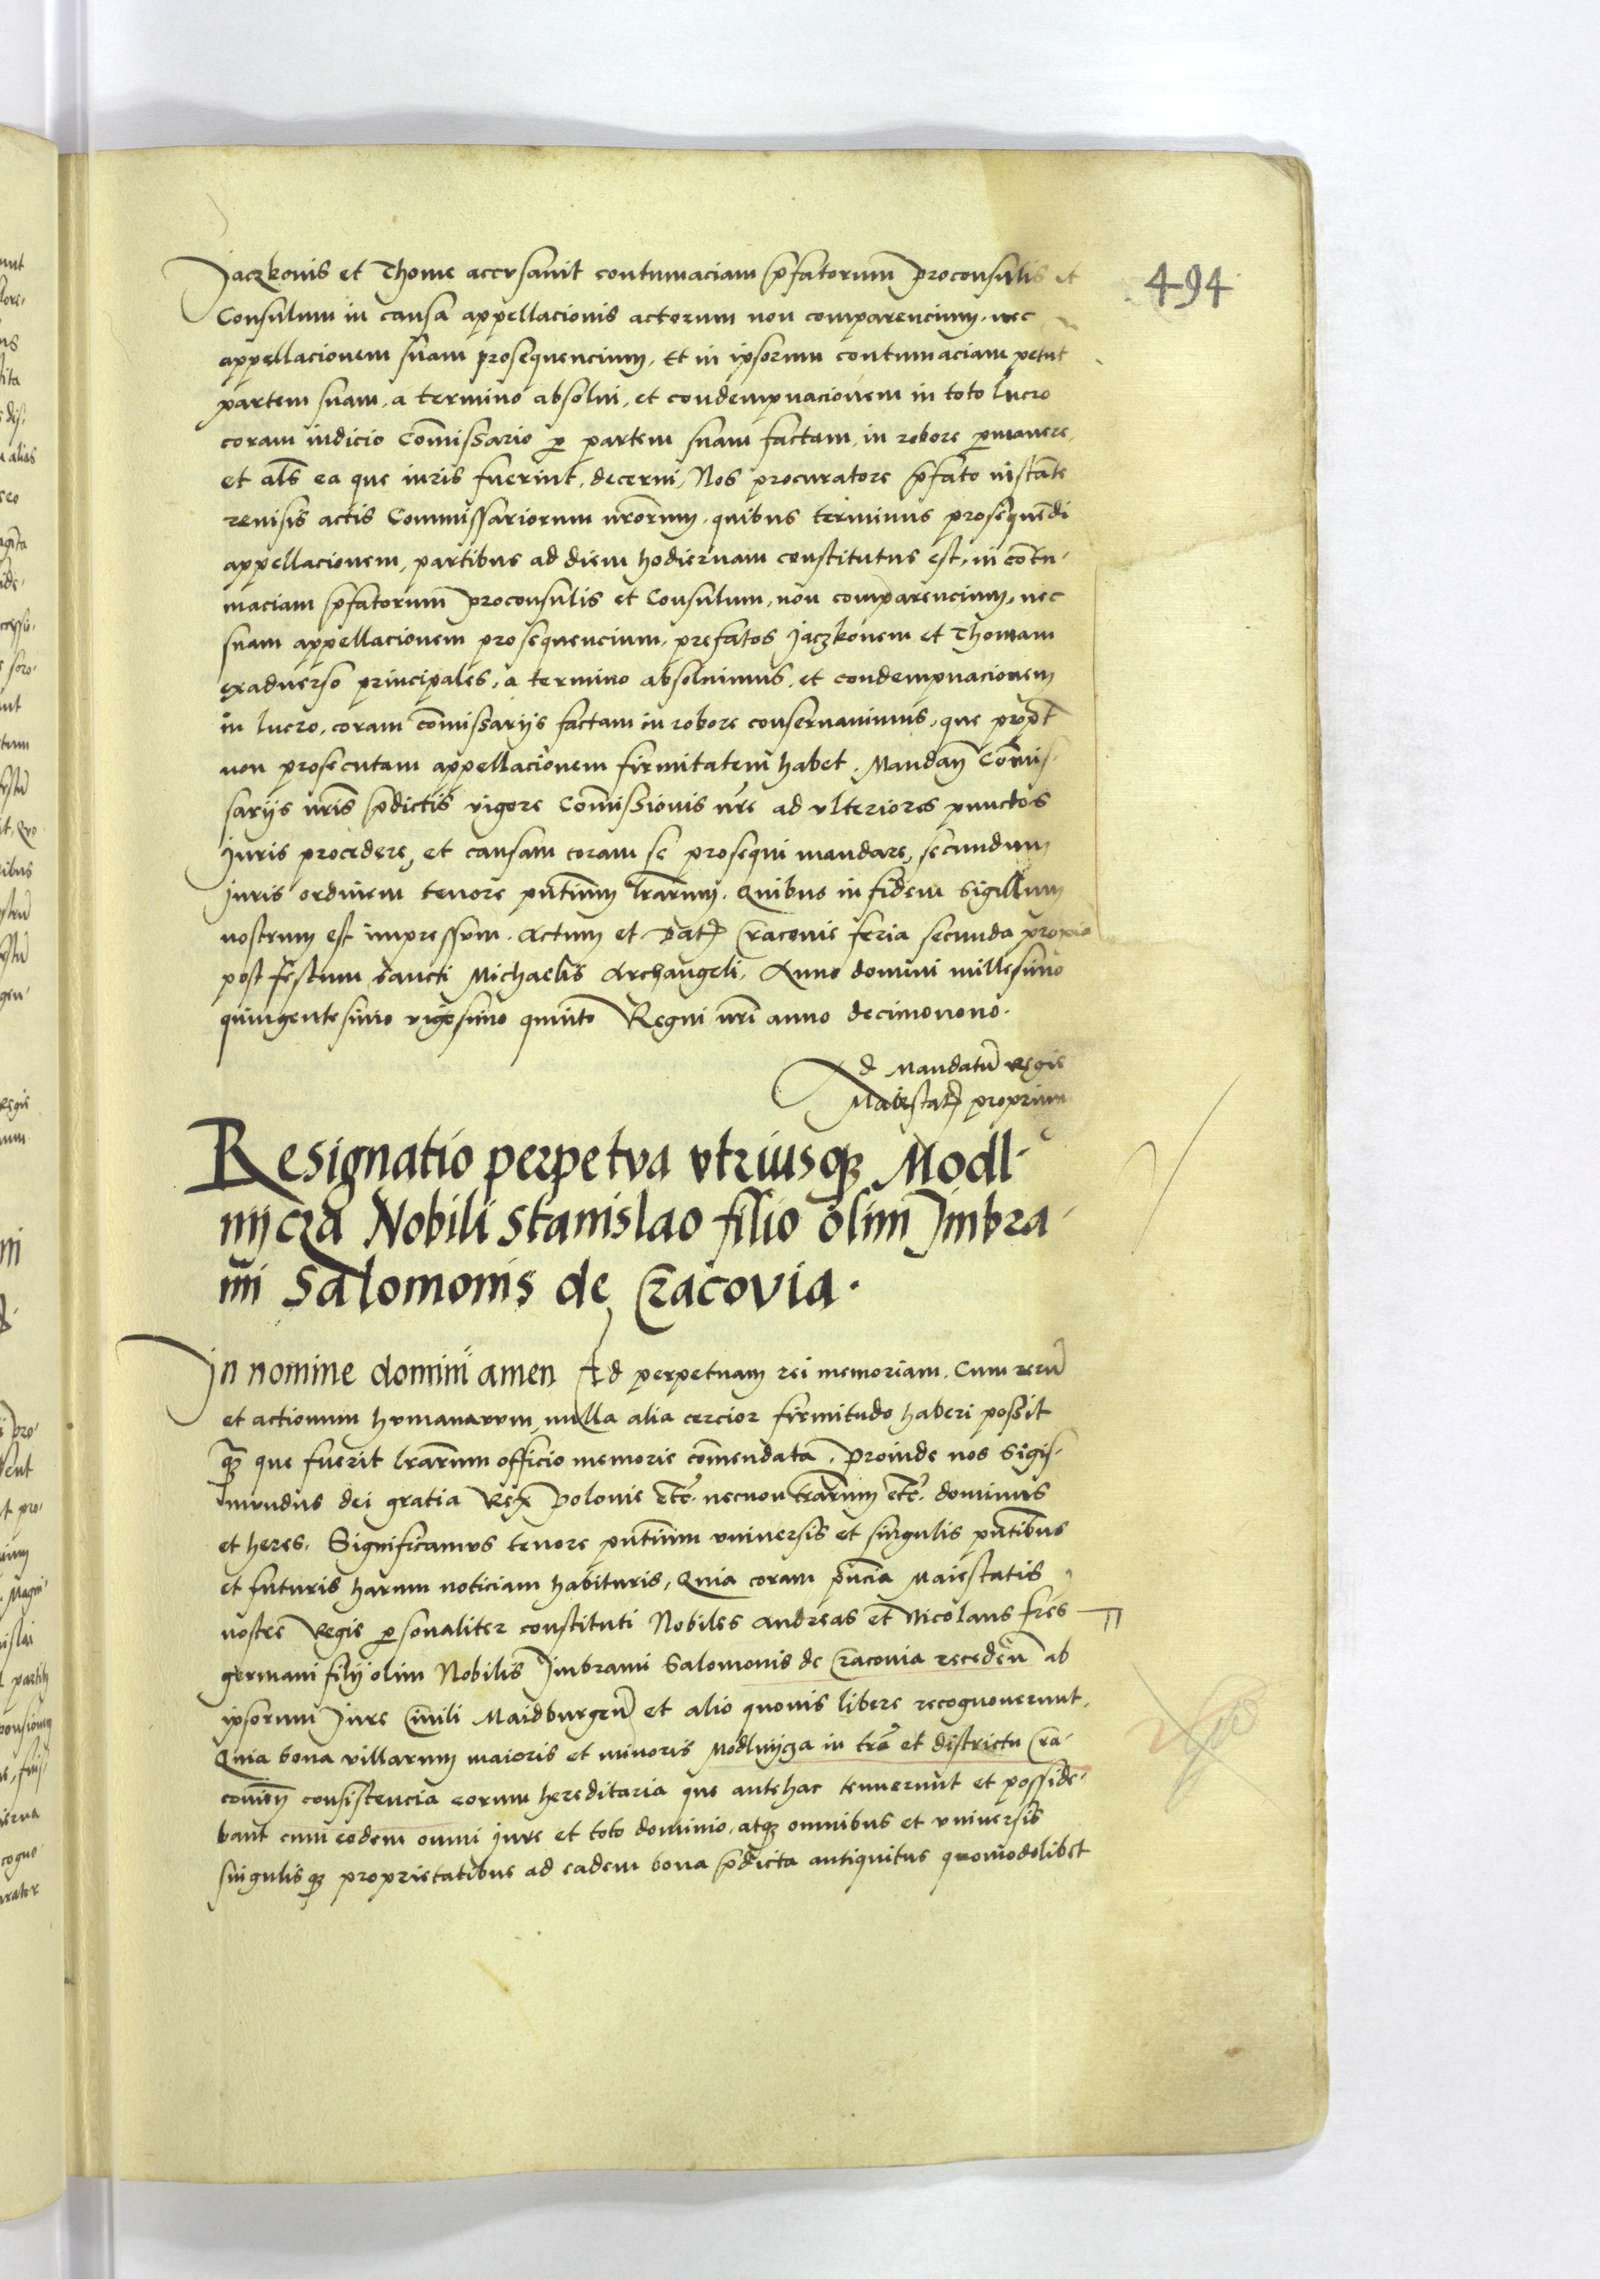 494
Jaczkonis et Thome accusavit contumaciam p̄fatorum proconsulis et
Consulum in causa appellacionis actorum non comparencium, nec
appellacionem suam prosequencium. Et in ipsorum contumaciam petut
partem suam, a termino absolui, et condempnacionem in toto lucro
coram iudicio Com̄issario p partem suam factam, in robore p̱manere,
et al̄s ea que iuris fuerint, decerni, Nos procuratore p̄fato instāte
reuisis actis Commissariorum nr̄orum, quibus terminus prosequēdi
appellacionem, partibus ad diem hodiernam constitutus est, in cōtu-
maciam p̄fatorum proconsulis et Consulum, non comparencium, nec
suam appellacionem prosequencium, prefatos Jaczkonem et Thomam
exaduerso principales, a termino absoluimus, et condempnacionem
in lucro, coram com̄issarijs factam in robore conseruauimus, que propt̄
non prosecutam appellacionem firmitatem habet. Mandan̄ Com̄is-
sarijs nr̄is p̄dictis vigore Com̄issionis nr̄e ad vlteriores punctos
Juris procedere, et causam coram se prosequi mandare, secundum
Juris ordinem tenore pn̄tium lr̄arum. Quibus in fidem Sigillum
nostrum est impressum. Actum et Dat Cracouie feria secunda proxia
post festum sancti Michaelis Archangeli, Anno domini millesimo
quingentesimo vigesimo quinto Regni nr̄i anno decimonono.
Ad Mandatū Regie
Maiestat proprium
Resignatio perpetva vtriusq Modl-
nijcza Nobili Stanislao filio olim Jmbra-
mi Salomonis de Cracovia.
Jn nomine domini amen Ad perpetuam rei memoriam. Cum rerū
et actionum humanarum, nulla alia cercior firmitudo haberi possit
q̄ que fuerit lr̄arum officio memorie com̄endata. Proinde nos Sigis-
mundus dei gratia Rex Polonie etc̄. necnon trarum etc̄. dominus
et heres. Significamus tenore pn̄tium vniuersis et singulis pn̄tibus
et futuris harum noticiam habituris, Quia coram pn̄cia Maiestatis
nostre Regie p̱sonaliter constituti Nobiles Andreas et Nicolaus fr̄es
germani filij olim Nobilis Jmbrami Salomonis de Cracouia receden̄ ab
ipsorum Jure Ciuili Maidburgen̄ et alio quouis libere recognouerunt,
Quia bona villarum maioris et minoris Modlnijcza in tr̄a et districtu Cra-
couien̄ consistencia eorum hereditaria que antehac tenuerunt et posside-
bant cum eodem omni Jure et toto dominio, atq omnibus et vniuersis
singulisq proprietatibus ad eadem bona p̄dicta antiquitus quomodolibet